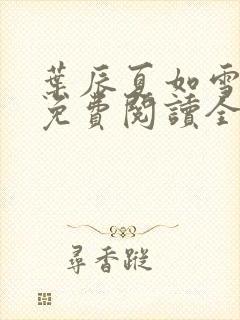 葉辰夏如雪
免費閱讀全
尋香蹤